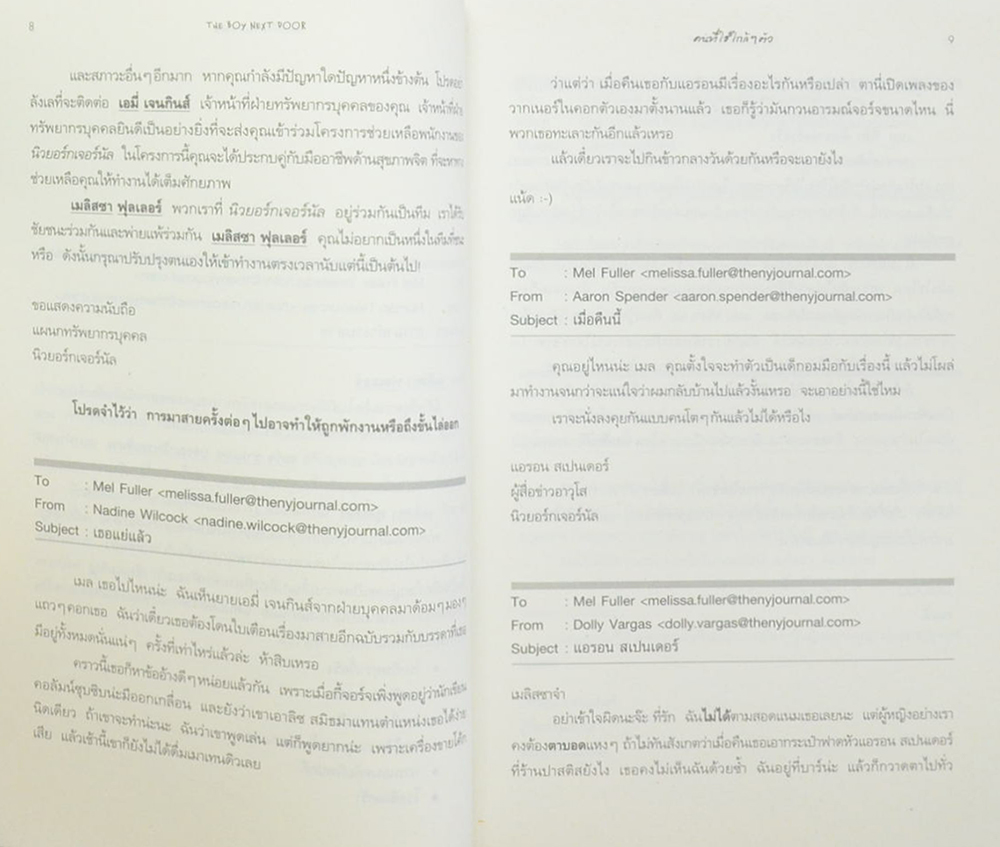 8
THE BOY NEXT DOOR
และสภาวะอื่นๆ อีกมาก หากคุณกำลังมีปัญหาใดปัญหาหนึ่งข้างต้น โปรดอย่า
ลังเลที่จะติดต่อ เอมี่ เจนกินส์ เจ้าหน้าที่ฝ่ายทรัพยากรบุคคลของคุณ เจ้าหน้าที่ฝ่าย
ทรัพยากรบุคคลยินดีเป็นอย่างยิ่งที่จะส่งคุณเข้าร่วมโครงการช่วยเหลือพนักงานของ
นิวยอร์กเจอร์นัล ในโครงการนี้คุณจะได้ประกบคู่กับมืออาชีพด้านสุขภาพจิต ที่จะ
ช่วยเหลือคุณให้ทำงานได้เต็มศักยภาพ
เมลิสซา ฟุลเลอร์ พวกเราที่ นิวยอร์กเจอร์นัล อยู่ร่วมกันเป็นทีม เราได้รับ
ชัยชนะร่วมกันและพ่ายแพ้ร่วมกัน เมลิสซา ฟุลเลอร์ คุณไม่อยากเป็นหนึ่งในทีมที่ชนะ
หรือ ดังนั้นกรุณาปรับปรุงตนเองให้เข้าทำงานตรงเวลานับแต่นี้เป็นต้นไป!
ขอแสดงความนับถือ
แผนกทรัพยากรบุคคล
นิวยอร์กเจอร์นัล
โปรดจำไว้ว่า การมาสายครั้งต่อๆ ไปอาจทำให้ถูกพักงานหรือถึงขั้นไล่ออก
To : Mel Fuller <melissa.fuller@thenyjournal.com>
From : Nadine Wilcock <nadine.wilcock@thenyjournal.com>
Subject : เธอแย่แล้ว
เมล เธอไปไหนน่ะ ฉันเห็นยายเอมี่ เจนกินส์จากฝ่ายบุคคลมาด้อมๆ มองๆ
แถวๆ คอกเธอ ฉันว่าเดี๋ยวเธอต้องโดนใบเตือนเรื่องมาสายอีกฉบับรวมกับบรรดาที่เธอ
มีอยู่ทั้งหมดนั่นแน่ๆ ครั้งที่เท่าไหร่แล้วล่ะ ห้าสิบเหรอ
คราวนี้เธอก็หาข้ออ้างดีๆ หน่อยแล้วกัน เพราะเมื่อกี้จอร์จเพิ่งพูดอยู่ว่านักเขียน
คอลัมน์ซุบซิบน่ะมีออกเกลื่อน และยังว่าเขาเอาลิซ สมิธมาแทนตำแหน่งเธอได้ง่าย
นิดเดียว ถ้าเขาจะทำน่ะนะ ฉันว่าเขาพูดเล่น แต่ก็พูดยากน่ะ เพราะเครื่องขายโค้ก
เสีย แล้วเช้านี้เขาก็ยังไม่ได้ดื่มเมาเทนดิวเลย
คนที่ใช่ใกล้ๆ ตัว
9
ว่าแต่ว่า เมื่อคืนเธอกับแอรอนมีเรื่องอะไรกันหรือเปล่า ตานี่เปิดเพลงของ
วากเนอร์ในคอกตัวเองมาตั้งนานแล้ว เธอก็รู้ว่ามันกวนอารมณ์จอร์จขนาดไหน นี่
พวกเธอทะเลาะกันอีกแล้วเหรอ
แล้วเดี๋ยวเราจะไปกินข้าวกลางวันด้วยกันหรือจะเอายังไง
แน้ด :-)
To : Mel Fuller <melissa.fuller@thenyjournal.com>
From : Aaron Spender <aaron.spender@thenyjournal.com>
Subject : เมื่อคืนนี้
คุณอยู่ไหนน่ะ เมล คุณตั้งใจจะทำตัวเป็นเด็กอมมือกับเรื่องนี้ แล้วไม่โผล่
มาทำงานจนกว่าจะแน่ใจว่าผมกลับบ้านไปแล้วงั้นเหรอ จะเอาอย่างนี้ใช่ไหม
เราจะนั่งลงคุยกันแบบคนโตๆ กันแล้วไม่ได้หรือไง
แอรอน สเปนเดอร์
ผู้สื่อข่าวอาวุโส
นิวยอร์กเจอร์นัล
To : Mel Fuller <melissa.fuller@thenyjournal.com>
From : Dolly Vargas <dolly.vargas@thenyjournal.com>
Subject : แอรอน สเปนเดอร์
เมลิสซาจ๋า
อย่าเข้าใจผิดนะจ๊ะ ที่รัก ฉันไม่ได้ตามสอดแนมเธอเลยนะ แต่ผู้หญิงอย่างเรา
คงต้องตาบอดแหงๆ ถ้าไม่ทันสังเกตว่าเมื่อคืนเธอเอากระเป๋าฟาดหัวแอรอน สเปนเดอร์
ที่ร้านปาสติสยังไง เธอคงไม่เห็นฉันด้วยซ้ำ ฉันอยู่ที่บาร์น่ะ แล้วก็กวาดตาไปทั่ว